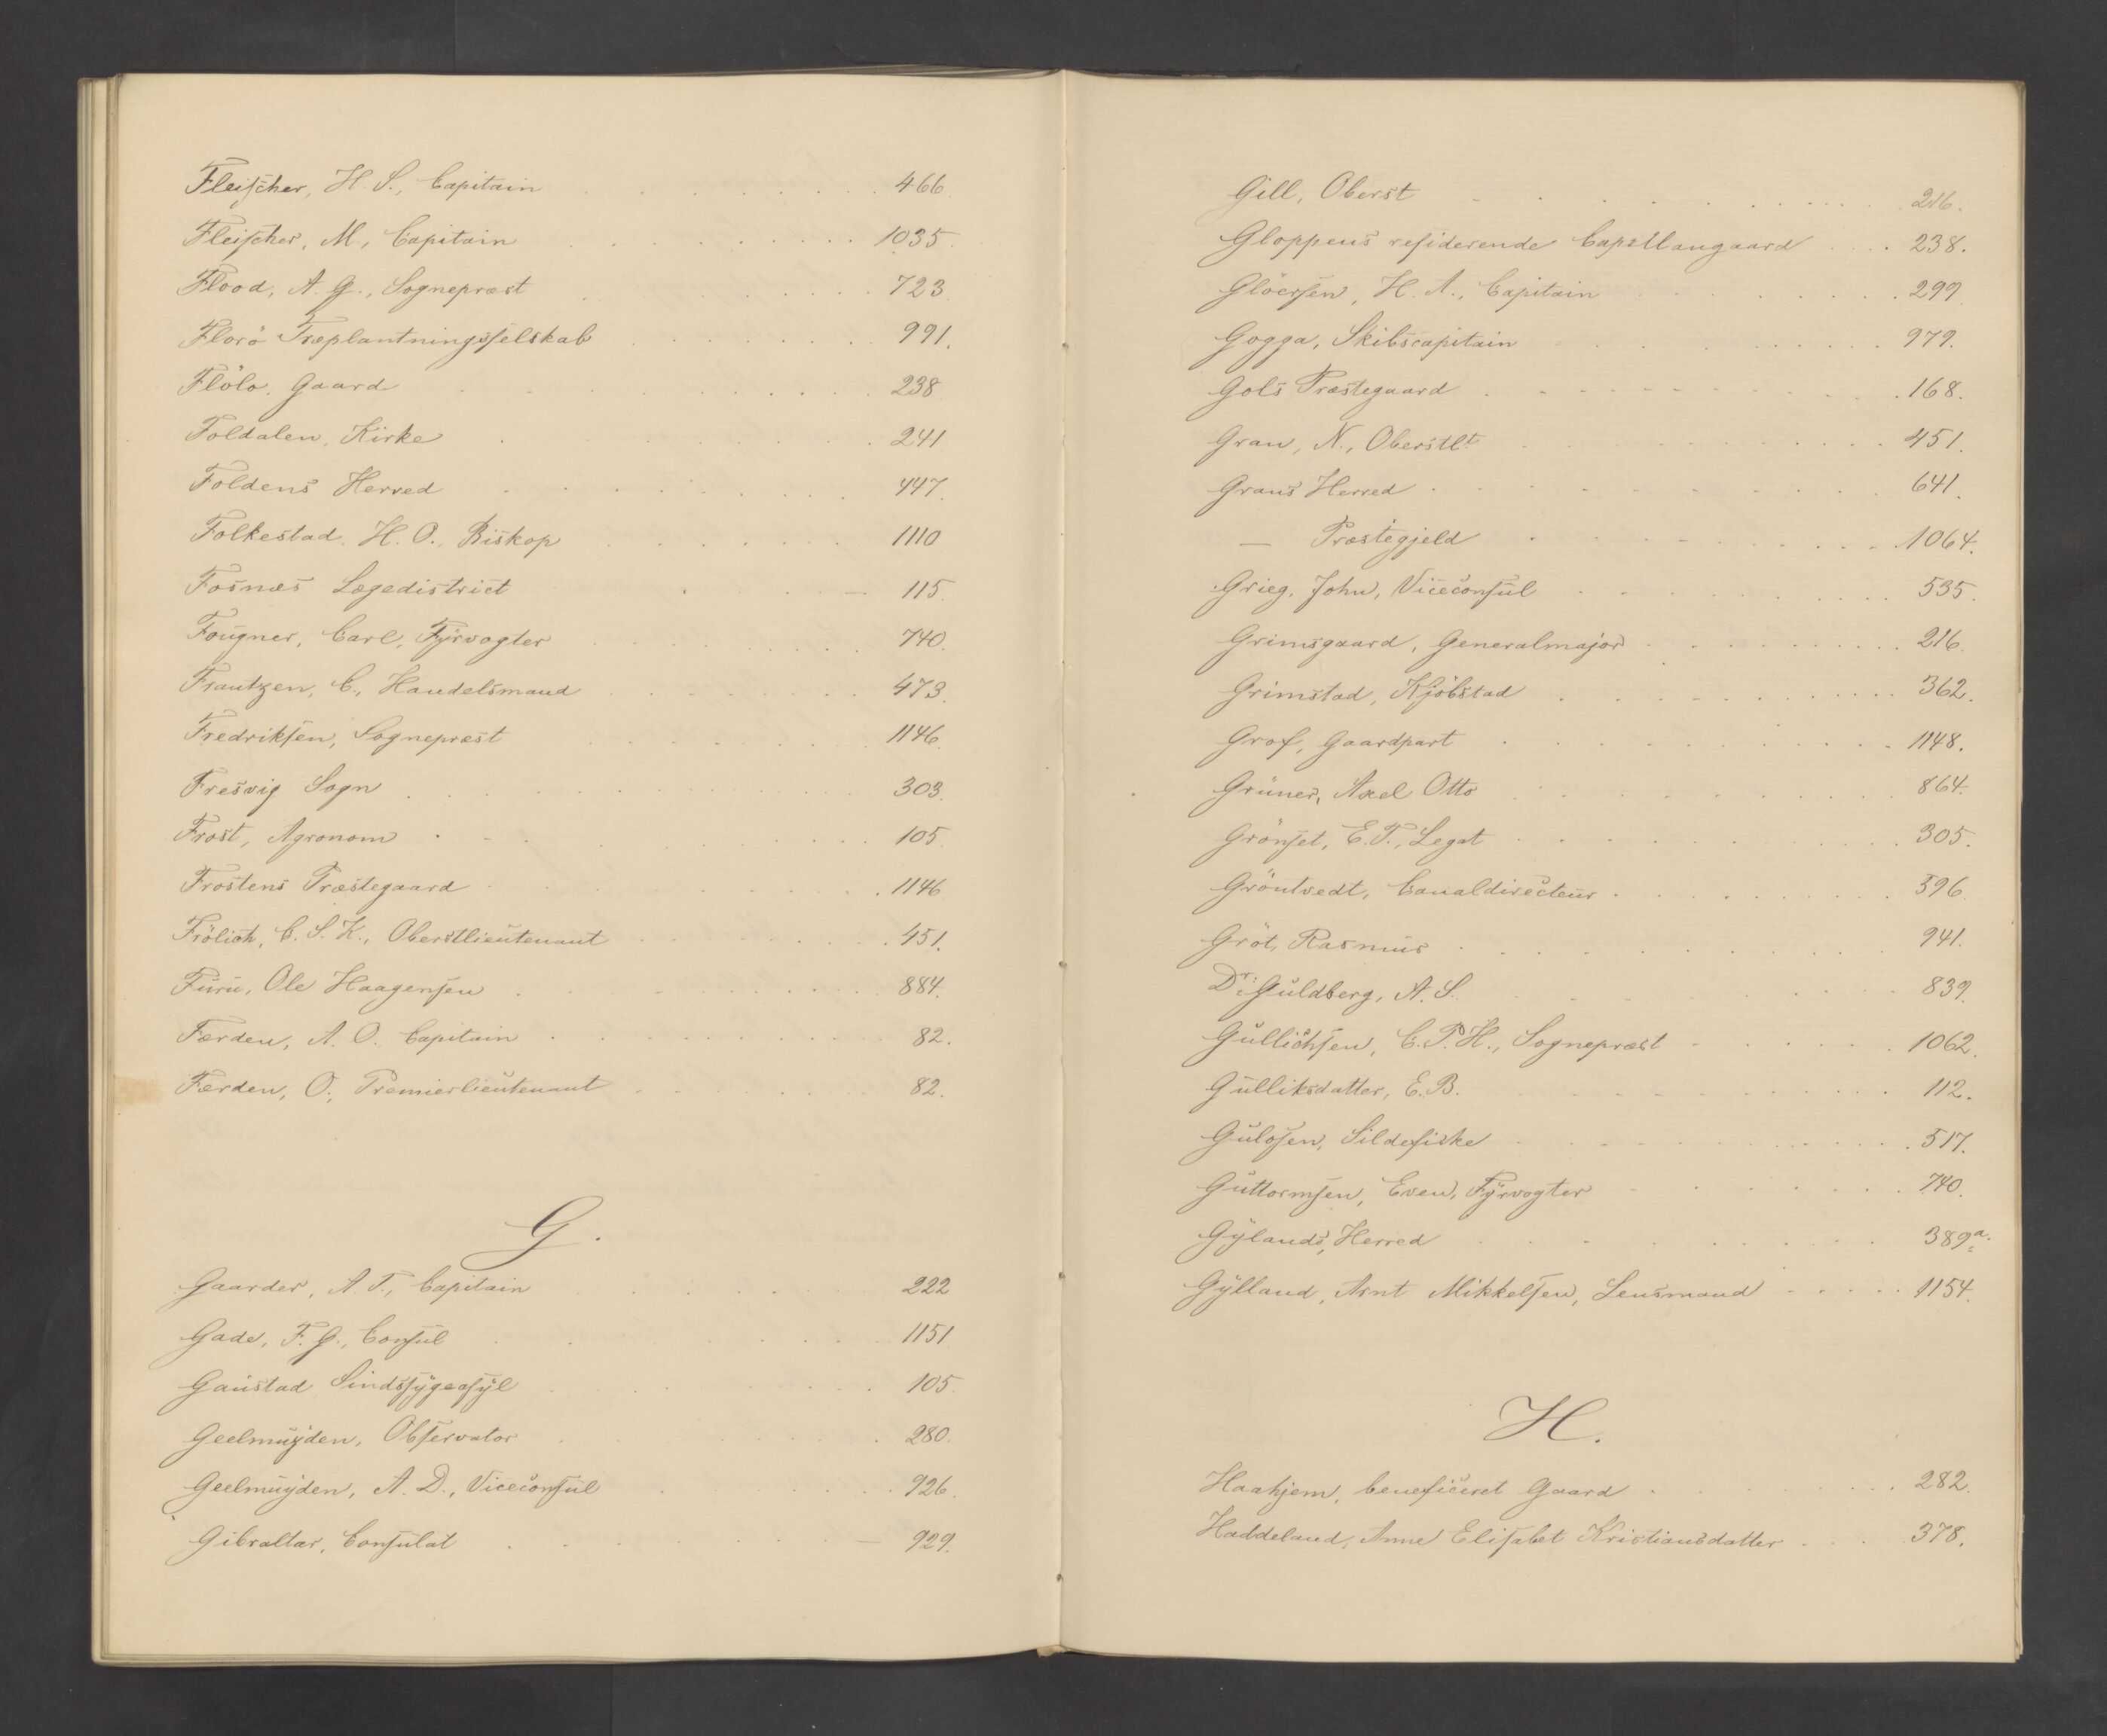 Fleischer, H. S., Capitain 466
Fleischer, M., Capitain 1035.
Flood, A. G., Sognepræst 723.
Florö Træplantningsselskab 991.
Flölo, Gaard 238
Foldalen, Kirke 241
Foldens Herred 447.
Folkestad, H. O., Biskop 1110
Fosnæs Lægedistrict — 115.
Fougner, Carl, Fyrvogter 740.
Frantzen, C., Handelsmand 473.
Fredriksen, Sognepræst 1146.
Fresvig Sogn 303.
Frost, Agronom 105.
Frostens Præstegaard 1146
Frölich, C. S. K., Oberstlieutenant 451.
Furu, Ole Haagensen 884.
Færden, A. O. Capitain 82.
Færden, O., Premierlieutenant 82.
G.
Gaarder, A. T., Capitain 222
Gade, F. G., Consul 1151
Gaustad Sindssygeasyl 105.
Geelmuyden, Observator 280.
Geelmuyden, A. D., Viceconsul 926.
Gibraltar, Consulat — 929.
Gill, Oberst 216.
Gloppens residerende Capellangaard 238.
Glöersen, H. A., Capitain 299
Gogga, Skibscapitain 979.
Gols Præstegaard 168.
Gran, N., Oberstlt 451.
Grans Herred 641.
— Præstegjeld 1064.
Grieg, John, Viceconsul 535.
Grimsgaard, Generalmajor 216.
Grimstad, Kjöbstad 362.
Grof, Gaardpart 1148.
Grüner, Axel Otto 864.
Grönset, E. T., Legat 305.
Gröntvedt, Canaldirecteur 396.
Gröt, Rasmus 941.
Dr. Guldberg, A. S. 839.
Gullichsen, C. P. H., Sognepræst 1062.
Gulliksdatter, E. B. 112.
Gulosen, Sildefiske 517.
Guttormsen, Even, Fyrvogter 740.
Gylands Herred 389a.
Gylland, Arnt Mikkelsen, Lensmand 1154.
H.
Haahjem, beneficeret Gaard 282.
Haddeland, Anne Elisabet Kristiansdatter 378.